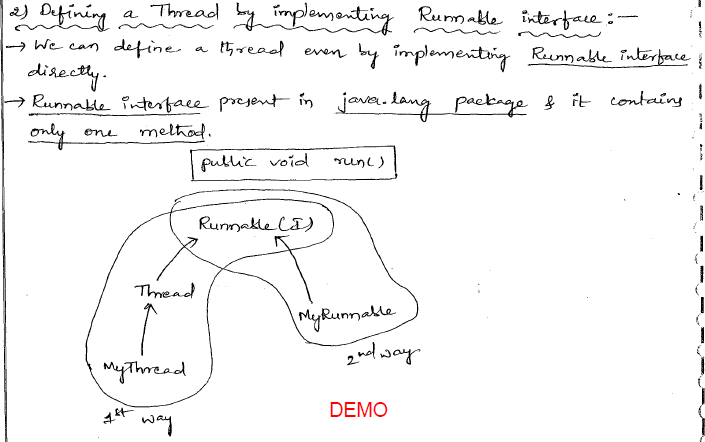 2) Defining a Thread by implementing Runnable interface :—
→ We can define a thread even by implementing Runnable interface
directly.
→ Runnable interface present in java.lang package & it contains
only one method.
public void run()
Runnable (I)
Thread
MyRunnable
2nd way
MyThread
1st way
DEMO